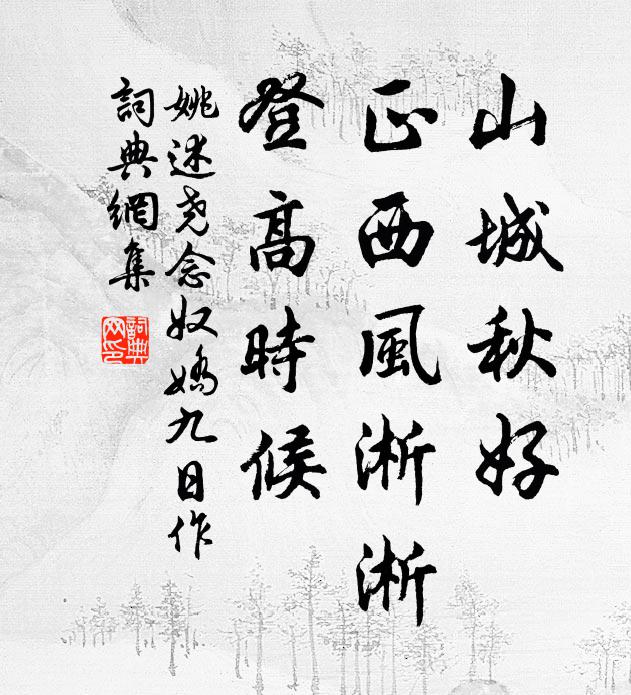 山城秋好
正西風淅淅
登高時候
姚述尧念奴嬌九日作
詞典網集
詞典網印